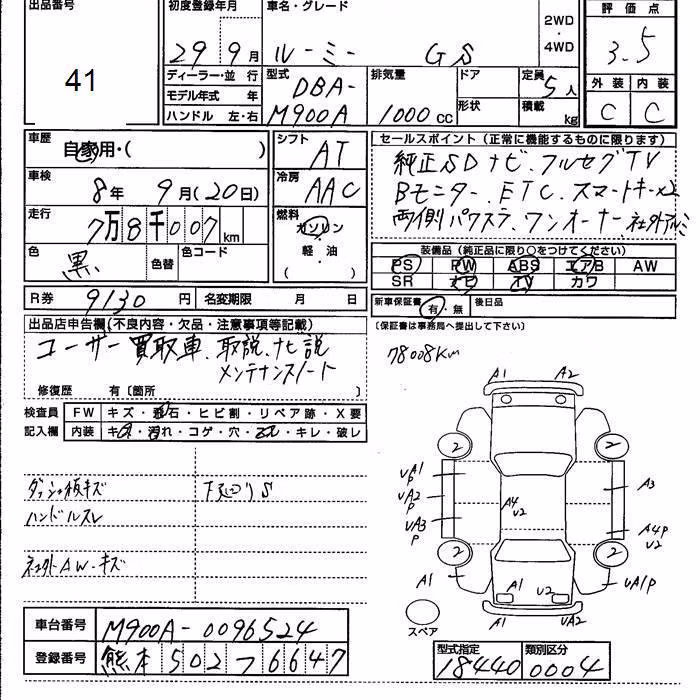 出品番号
41
初度登録年月
29年 9月
車名・グレード
ルーミー GS
2WD
・
4WD
評価点
3.5
ディーラー・並 行
モデル年式 年
ハンドル 左・右
型式
DBA-
M900A
排気量
1000 cc
ドア
形状
定員
5人
積載
kg
外装
内装
C
C
車歴
自家用・( )
車検
8年 9月(20日)
走行
7万8千007km
色
黒
色替
色コード
シフト
AT
冷房
AAC
燃料
ガソリン
軽・油
( )
セールスポイント(正常に機能するものに限ります)
純正SDナビ、フルセグTV
Bモニター、ETC、スマートキー×2
両側パワスラ、ワンオーナー、社外アルミ
装備品(純正品に限り○をつけてください)
PS PW ABS エアB AW
SR ナビ TV カワ
R券 9130円 名変期限 月 日
新車保証書 有・無 後日品
(保証書は事務局へ提出して下さい)
出品店申告欄(不良内容・欠品・注意事項等記載)
ユーザー買取車、取説、ナビ説
メンテナンスノート
修復歴 有〔箇所 〕
78008Km
検査員
記入欄
FW キズ・飛石・ヒビ割・リペア跡・X要
内装 キズ・汚れ・コゲ・穴・スレ・キレ・破レ
ダッシュ板キズ
下廻りS
ハンドルスレ
社外AW・キズ
A1 A2
2 2
UA1
P
A3
UA2
P
A4
U2
UA3
P
A4P
U2
2 2
A1
UA1P
A1 U2
A1 UA2
スペア
車台番号 M900A-0096524
登録番号 熊本 502 つ 6647
型式指定 18440
類別区分 0004